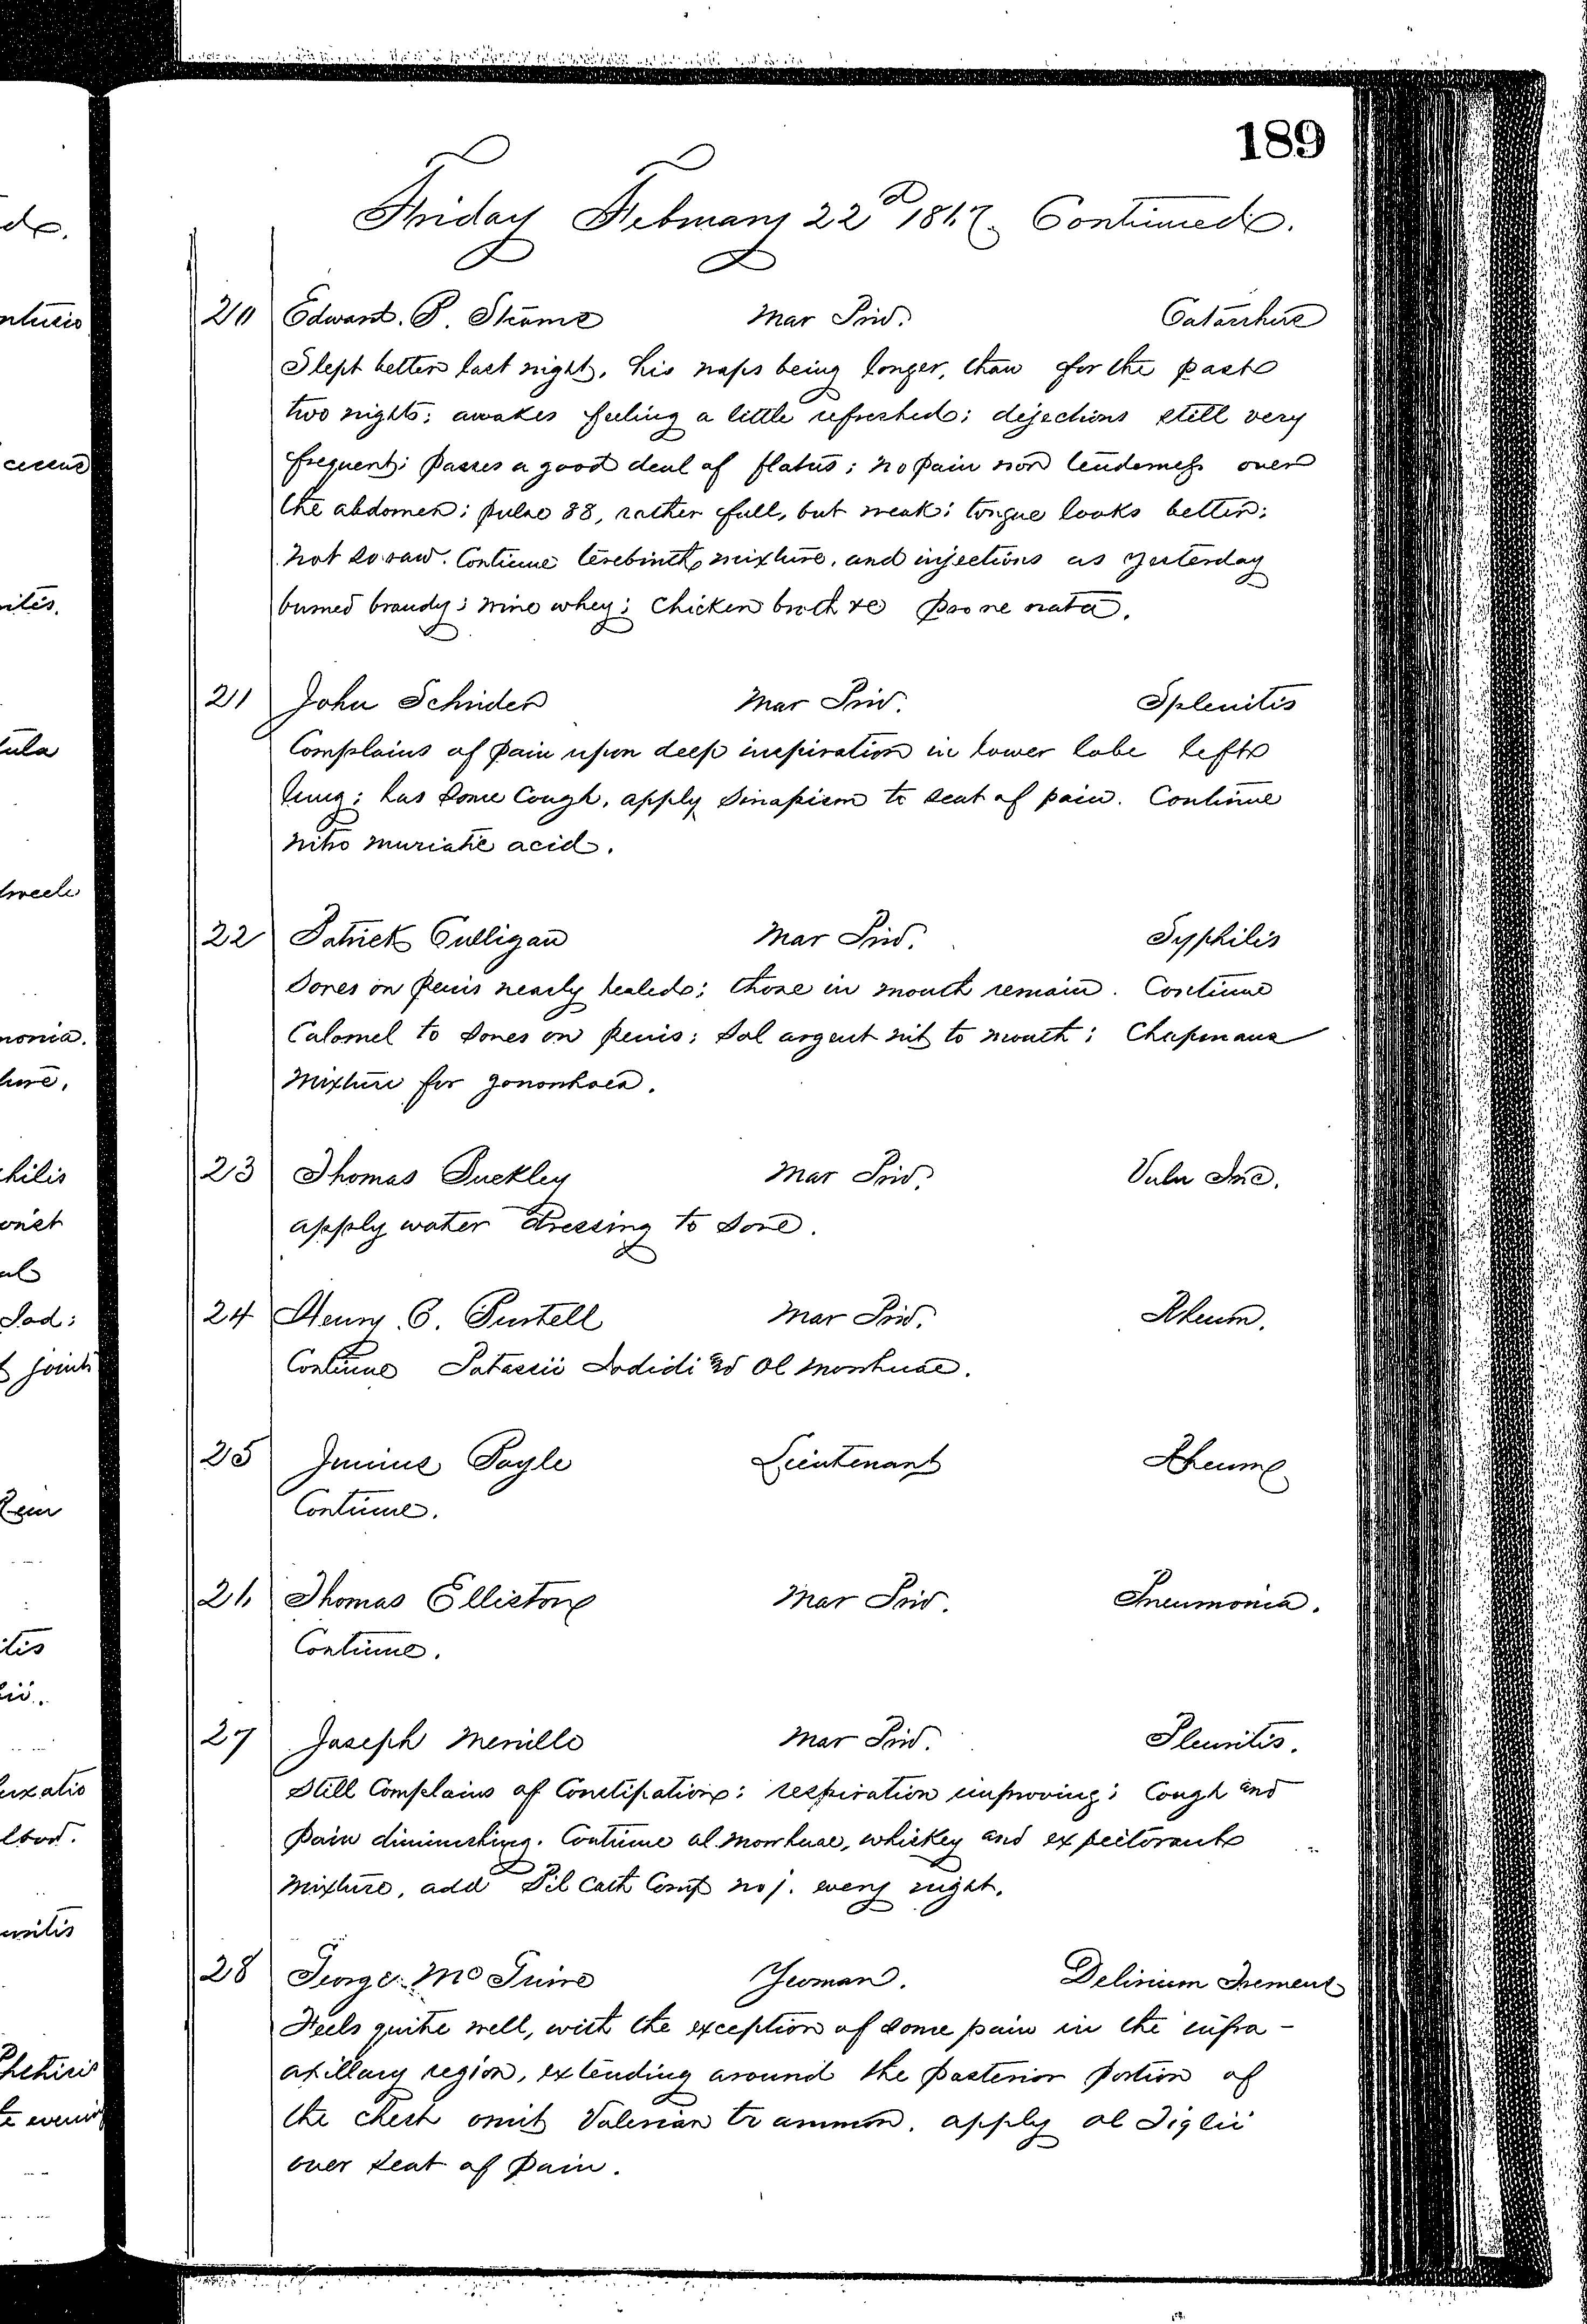 189
Friday February 22d 1867. Continued.
20 Edward. P. Mar Priv. Catarrhus
Slept better last night, his naps being longer, than for the past
two nights; awakes feeling a little refreshed; dejections still very
frequent; passes a good deal of flatus; no pain nor tenderness over
the abdomen; pulse 88, rather full, but weak; tongue looks better;
not so raw. Continue terebinth mixture, and injections as yesterday
burned brandy; wine whey; chicken broth &c pro re nata.
21 John Schrider Mar Priv. Splenitis
Complains of pain upon deep inspiration in lower lobe left
lung; has some cough, apply sinapism to seat of pain. Continue
nitro muriatic acid.
22 Patrick Culligan Mar Priv. Syphilis
Sores on penis nearly healed; those in mouth remain. Continue
Calomel to sores on penis; Sol argent nit to mouth; Chapmans
mixture for gonorrhoea.
23 Thomas Puckley Mar Priv. Vuln Inc.
apply water dressing to sore.
24 Henry C. Purtell Mar Priv. Rheum.
Continue Potassii Iodidi and Ol morrhuae.
25 Junius Lieutenant Rheum
Continue.
26 Thomas Elliston Mar Priv. Pneumonia.
Continue.
27 Joseph Merrill Mar Priv. Pleuritis.
Still Complains of Constipation; respiration improving; Cough and
pain diminishing. Continue ol. morrhuae, whiskey and expectorant
mixture, add Pil Cath Comp no j. every night.
28 George McGuire Yeoman. Delirium Tremens
Feels quite well, with the exception of some pain in the infra-
axillary region, extending around the posterior portion of
the chest omit Valerian tr ammon. apply ol Tiglii
over seat of pain.